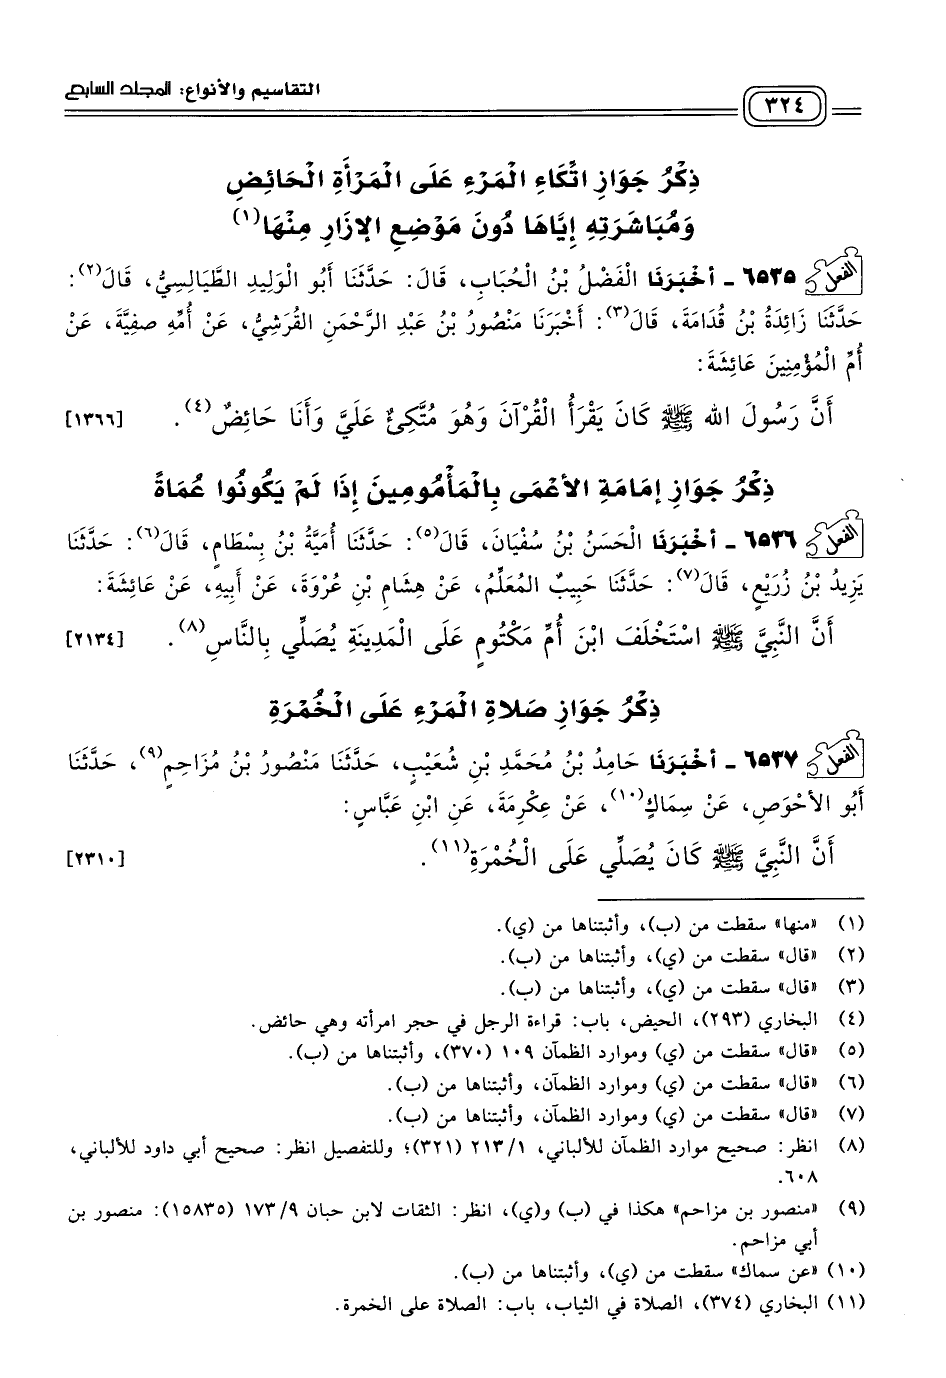 ٣٢٤
التقاسيم والأنواع: المجلد السابع
ذِكْرُ جَوَازِ اتِّكَاءِ الْمَرْءِ عَلَى الْمَرْأَةِ الْحَائِضِ
وَمُبَاشَرَتِهِ إِيَّاهَا دُونَ مَوْضِعِ الإِزَارِ مِنْهَا(١)
الفعل ٦٥٣٥ - أَخْبَرَنَا الْفَضْلُ بْنُ الْحُبَابِ، قَالَ: حَدَّثَنَا أَبُو الْوَلِيدِ الطَّيَالِسِيُّ، قَالَ(٢):
حَدَّثَنَا زَائِدَةُ بْنُ قُدَامَةَ، قَالَ(٣): أَخْبَرَنَا مَنْصُورُ بْنُ عَبْدِ الرَّحْمَنِ القُرَشِيُّ، عَنْ أُمِّهِ صَفِيَّةَ، عَنْ
أُمِّ الْمُؤْمِنِينَ عَائِشَةَ:
أَنَّ رَسُولَ الله ﷺ كَانَ يَقْرَأُ الْقُرْآنَ وَهُوَ مُتَّكِئٌ عَلَيَّ وَأَنَا حَائِضٌ(٤). [١٣٦٦]
ذِكْرُ جَوَازِ إِمَامَةِ الأَعْمَى بِالْمَأْمُومِينَ إِذَا لَمْ يَكُونُوا عُمَاةً
الفعل ٦٥٣٦ - أَخْبَرَنَا الْحَسَنُ بْنُ سُفْيَانَ، قَالَ(٥): حَدَّثَنَا أُمَيَّةُ بْنُ بِسْطَامٍ، قَالَ(٦): حَدَّثَنَا
يَزِيدُ بْنُ زُرَيْعٍ، قَالَ(٧): حَدَّثَنَا حَبِيبٌ المُعَلِّمُ، عَنْ هِشَامِ بْنِ عُرْوَةَ، عَنْ أَبِيهِ، عَنْ عَائِشَةَ:
أَنَّ النَّبِيَّ ﷺ اسْتَخْلَفَ ابْنَ أُمِّ مَكْتُومٍ عَلَى الْمَدِينَةِ يُصَلِّي بِالنَّاسِ(٨). [٢١٣٤]
ذِكْرُ جَوَازِ صَلاةِ الْمَرْءِ عَلَى الْخُمْرَةِ
الفعل ٦٥٣٧ - أَخْبَرَنَا حَامِدُ بْنُ مُحَمَّدِ بْنِ شُعَيْبٍ، حَدَّثَنَا مَنْصُورُ بْنُ مُزَاحِمٍ(٩)، حَدَّثَنَا
أَبُو الأَحْوَصِ، عَنْ سِمَاكٍ(١٠)، عَنْ عِكْرِمَةَ، عَنِ ابْنِ عَبَّاسٍ:
أَنَّ النَّبِيَّ ﷺ كَانَ يُصَلِّي عَلَى الْخُمْرَةِ(١١). [٢٣١٠]
(١) «منها» سقطت من (ب)، وأثبتناها من (ي).
(٢) «قال» سقطت من (ي)، وأثبتناها من (ب).
(٣) «قال» سقطت من (ي)، وأثبتناها من (ب).
(٤) البخاري (٢٩٣)، الحيض، باب: قراءة الرجل في حجر امرأته وهي حائض.
(٥) «قال» سقطت من (ي) وموارد الظمآن ١٠٩ (٣٧٠)، وأثبتناها من (ب).
(٦) «قال» سقطت من (ي) وموارد الظمآن، وأثبتناها من (ب).
(٧) «قال» سقطت من (ي) وموارد الظمآن، وأثبتناها من (ب).
(٨) انظر: صحيح موارد الظمآن للألباني، ٢١٣/١ (٣٢١)؛ وللتفصيل انظر: صحيح أبي داود للألباني،
٦٠٨.
(٩) «منصور بن مزاحم» هكذا في (ب) و(ي)، انظر: الثقات لابن حبان ١٧٣/٩ (١٥٨٣٥): منصور بن
أبي مزاحم.
(١٠) «عن سماك» سقطت من (ي)، وأثبتناها من (ب).
(١١) البخاري (٣٧٤)، الصلاة في الثياب، باب: الصلاة على الخمرة.